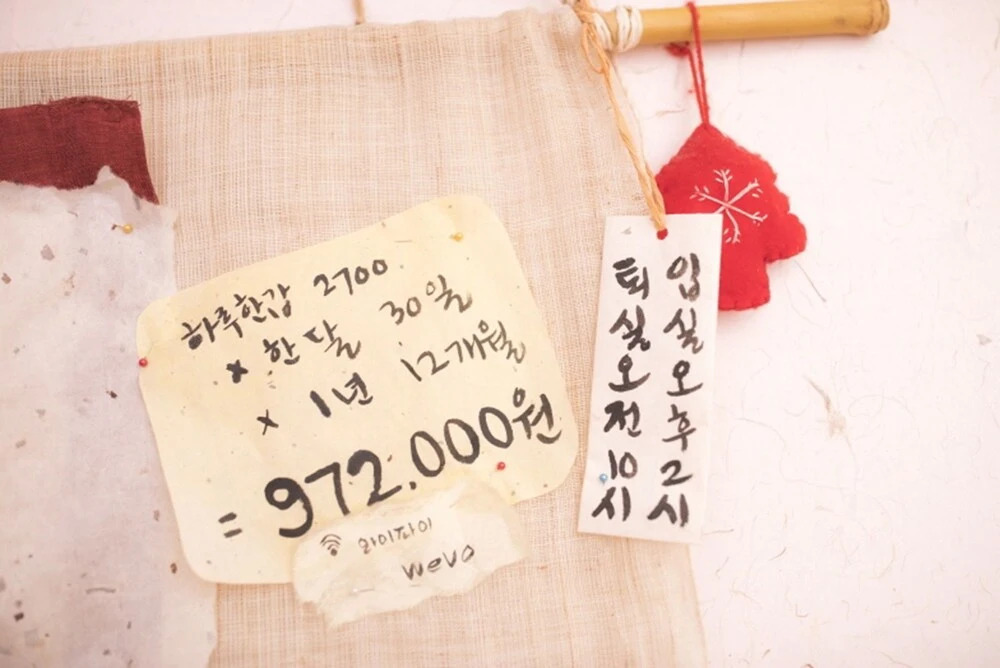 하루한갑 2700
x 한달 30일
x 1년 12개월
= 972.000원
와이파이
wevo
입실오후2시
퇴실오전10시